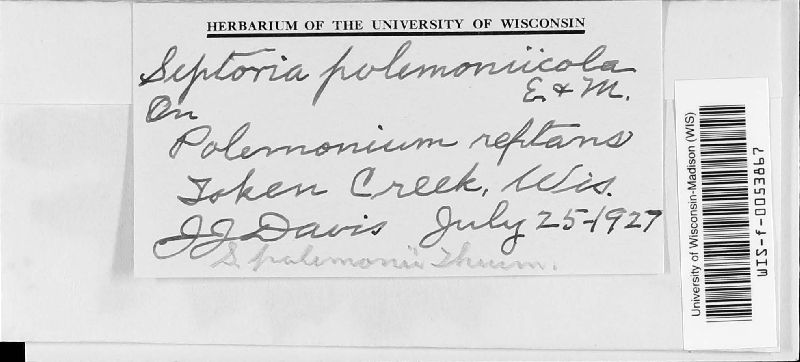 HERBARIUM OF THE UNIVERSITY OF WISCONSIN
Septoria polemoniicola
E. & M.
On
Polemonium reptans
Token Creek, Wis.
JJ Davis July 25-1927
S polemonii Thuem.
University of Wisconsin-Madison (WIS)
WIS-f-0053867